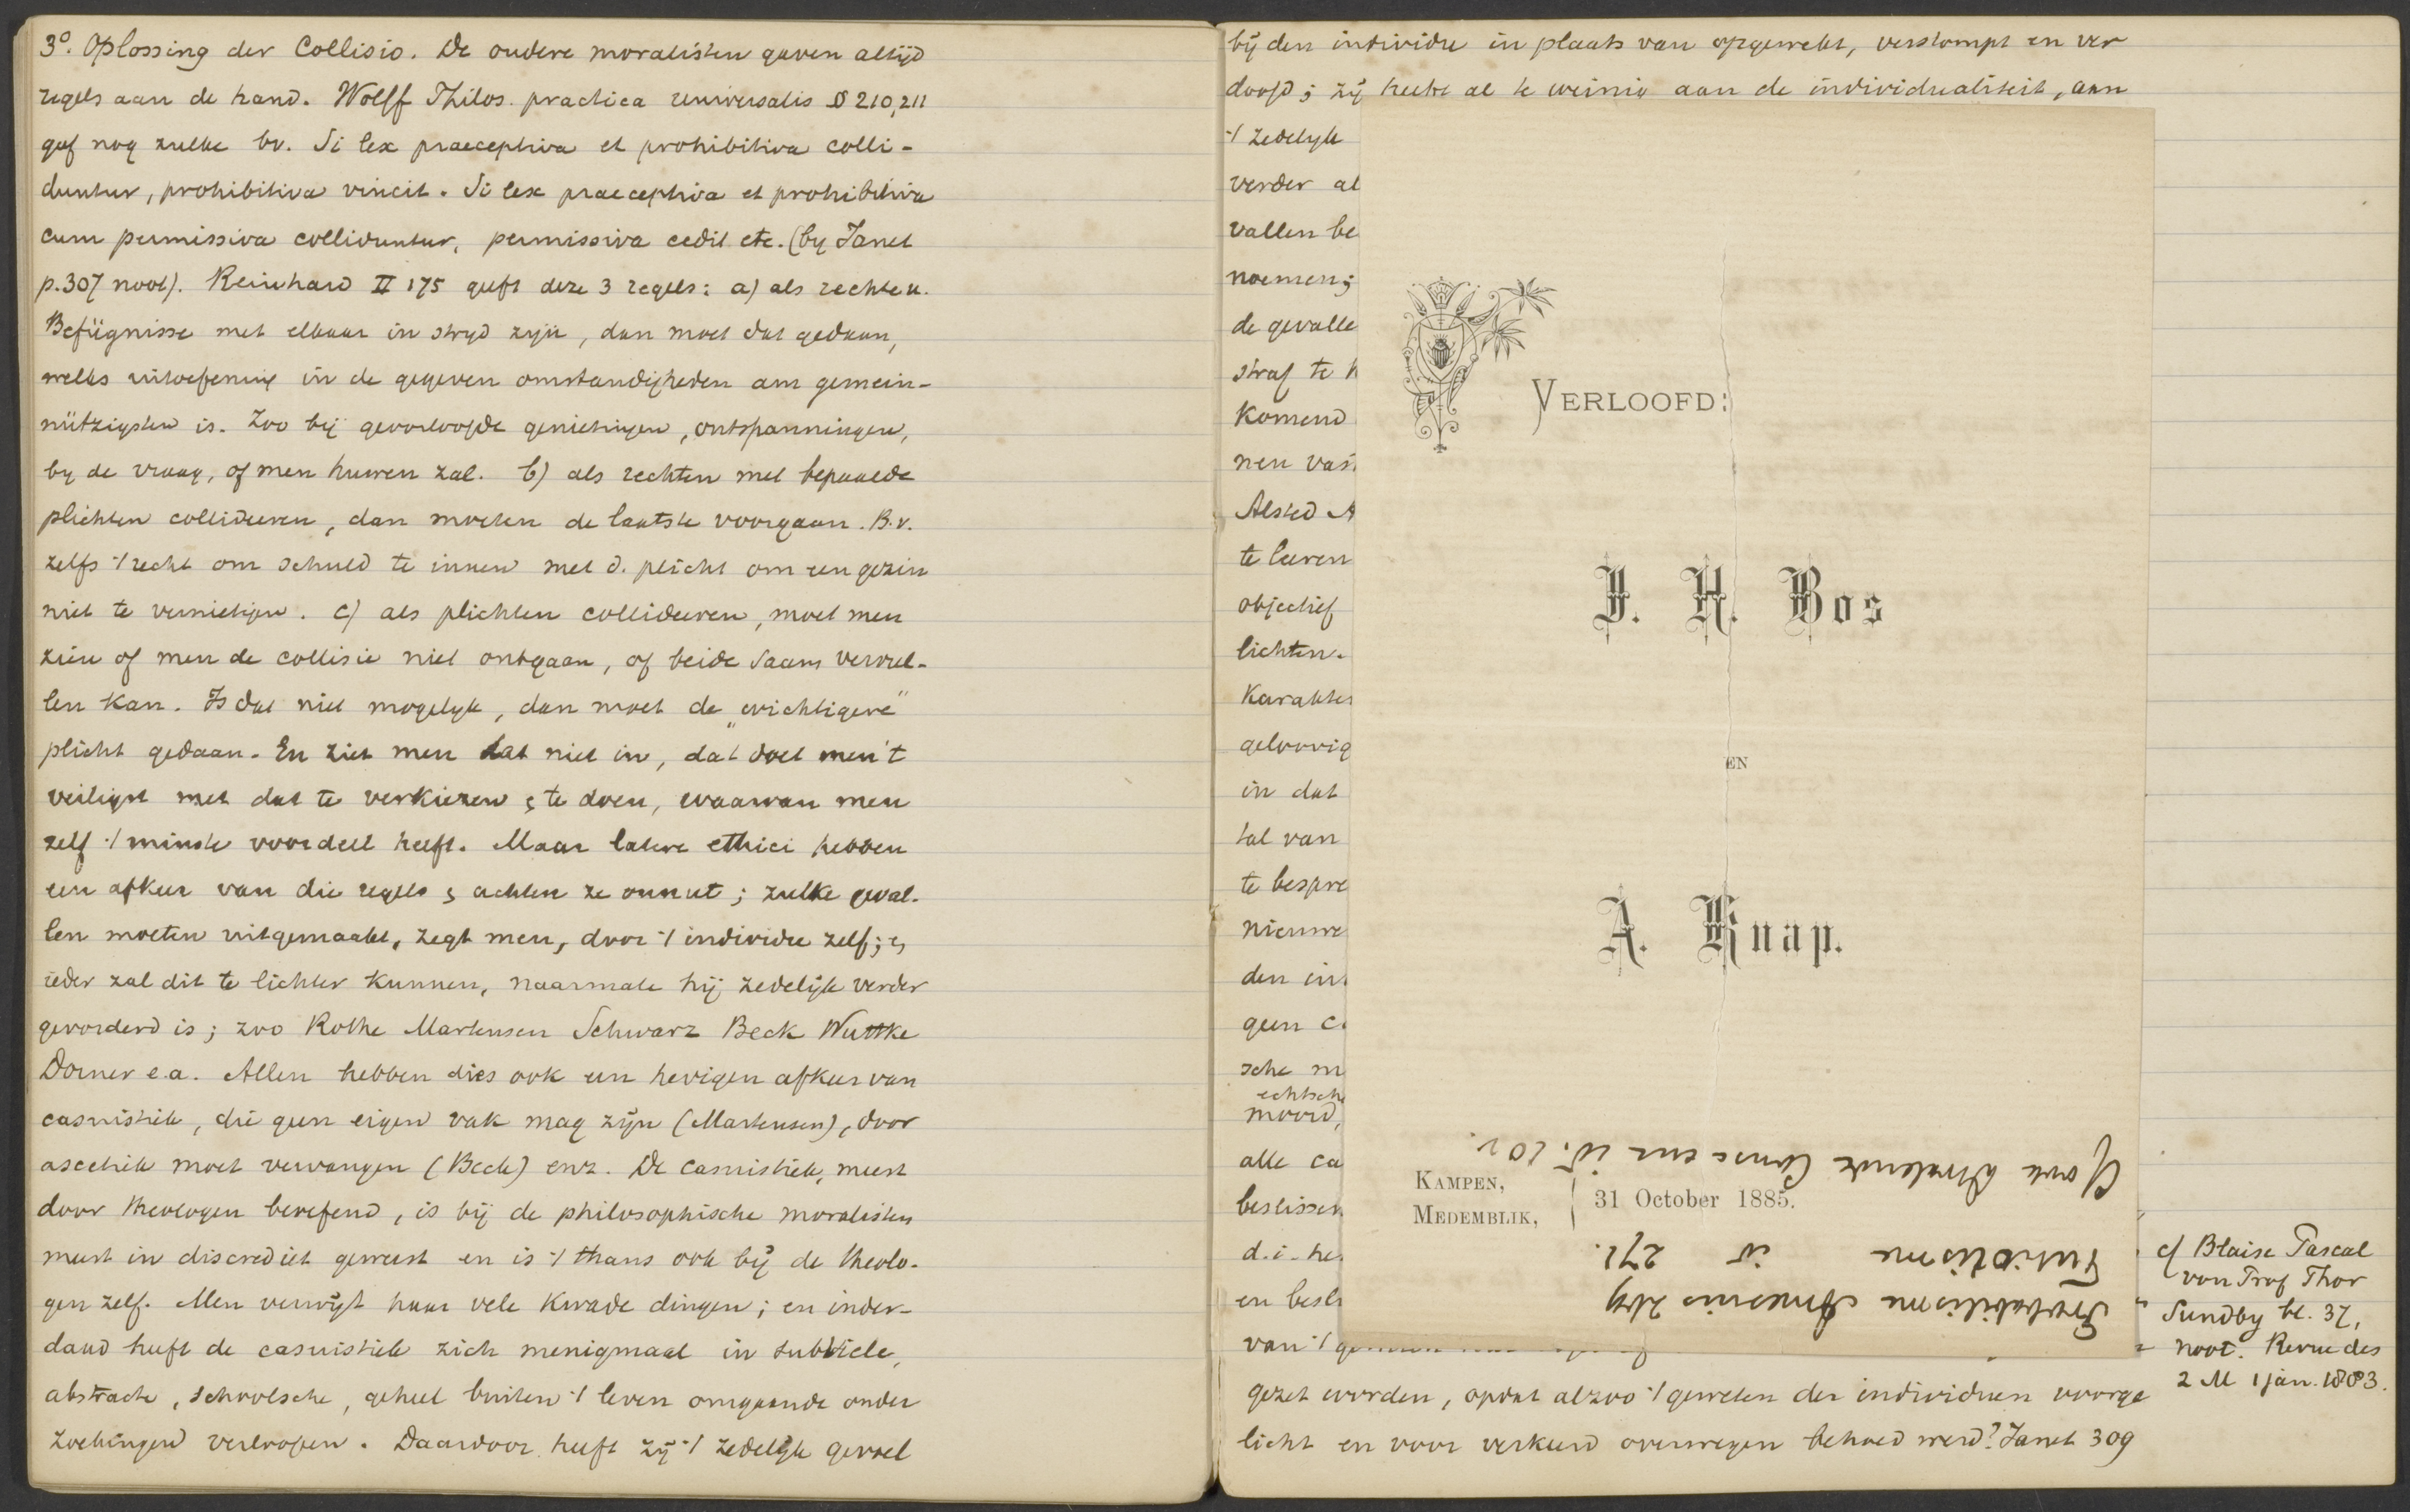 3º. Oplossing der Collisio. De oudere moralisten gaven altijd
regels aan de hand. Wolff Philos. practica universalis § 210,211
gaf nog zulke bv. Si lex praeceptiva et prohibitiva colli-
duntur, prohibitiva vincit. Si lex praeceptiva et prohibitiva
cum permissiva colliduntur, permissiva cedit etc. (by Janet
p.307 noot). Reinhard II 175 geeft deze 3 regels: a) als rechten u.
Befügnisse met elkaar in stryd zyn, dan moet dat gedaan,
welks uitoefening in de gegeven omstandigheden am gemein-
nützigsten is. Zoo bij geoorloofde genietingen, ontspanningen,
by de vraag, of men huwen zal. b) als rechten met bepaalde
plichten collideeren, dan moeten de laatste voorgaan. B.v.
zelfs 't recht om schuld te innen met d. plicht om een gezin
niet te vernietigen. c) als plichten collideeren, moet men
zien of men de collisie niet ontgaan, of beide saam vervul-
len kan. Is dat niet mogelyk, dan moet de „wichtigere"
plicht gedaan. En ziet men dat niet in, dat doet men 't
veiligst met dat te verkiezen & te doen, waarvan men
zelf 't minste voordeel heeft. Maar latere ethici hebben
een afkeer van die regels & achten ze onnut; zulke geval-
len moeten uitgemaakt, zegt men, door 't individu zelf; &
ieder zal dit te lichter kunnen, naarmate hij zedelijk verder
gevorderd is; zoo Rothe Martensen Schwarz Beck Wuttke
Dorner e.a. Allen hebben dies ook een hevigen afkeer van
casuistiek, die geen eigen vak mag zijn (Martensen), door
ascetiek moet vervangen (Beck) enz. De casuistiek, meest
door theologen beoefend, is bij de philosophische moralisten
meest in discrediet geweest en is 't thans ook bij de theolo-
gen zelf. Men verwijt haar vele kwade dingen; en inder-
daad heeft de casuistiek zich menigmaal in subtiele,
abstracte, schoolsche, geheel buiten 't leven omgaande onder
zoekingen verloopen. Daardoor heeft zij 't zedelijk gevoel
bij den individu in plaats van opgewekt, verstompt en ver
doofd; zij hecht al te weinig aan de individualiteit, aan
't zedelyk
verder al
vallen be
noemen;
de gevalle
straf te
Komend
nen vas
Alsted
te leeren
objectief
lichten.
Karakter
geloovig
in dat
tal van
te bespre
nieuwe
den in
geen c
sche m
echtsche
moord,
alle ca
beslissen
d.i. he
en besl
van 't
gezet worden, opdat alzoo 't geweten der individuen voorge
licht en voor verkeerd overwegen behoed werd? Janet 309
VERLOOFD:
J. H. Bos
EN
A. Knap.
KAMPEN,
MEDEMBLIK,
31 October 1885.
Probabilisme Amesius
Tutiorisme id 271.
cf Blaise Pascal
von Prof Thor
Sundby bl. 37,
noot. Revue des
2 M 1 jan. 1883.